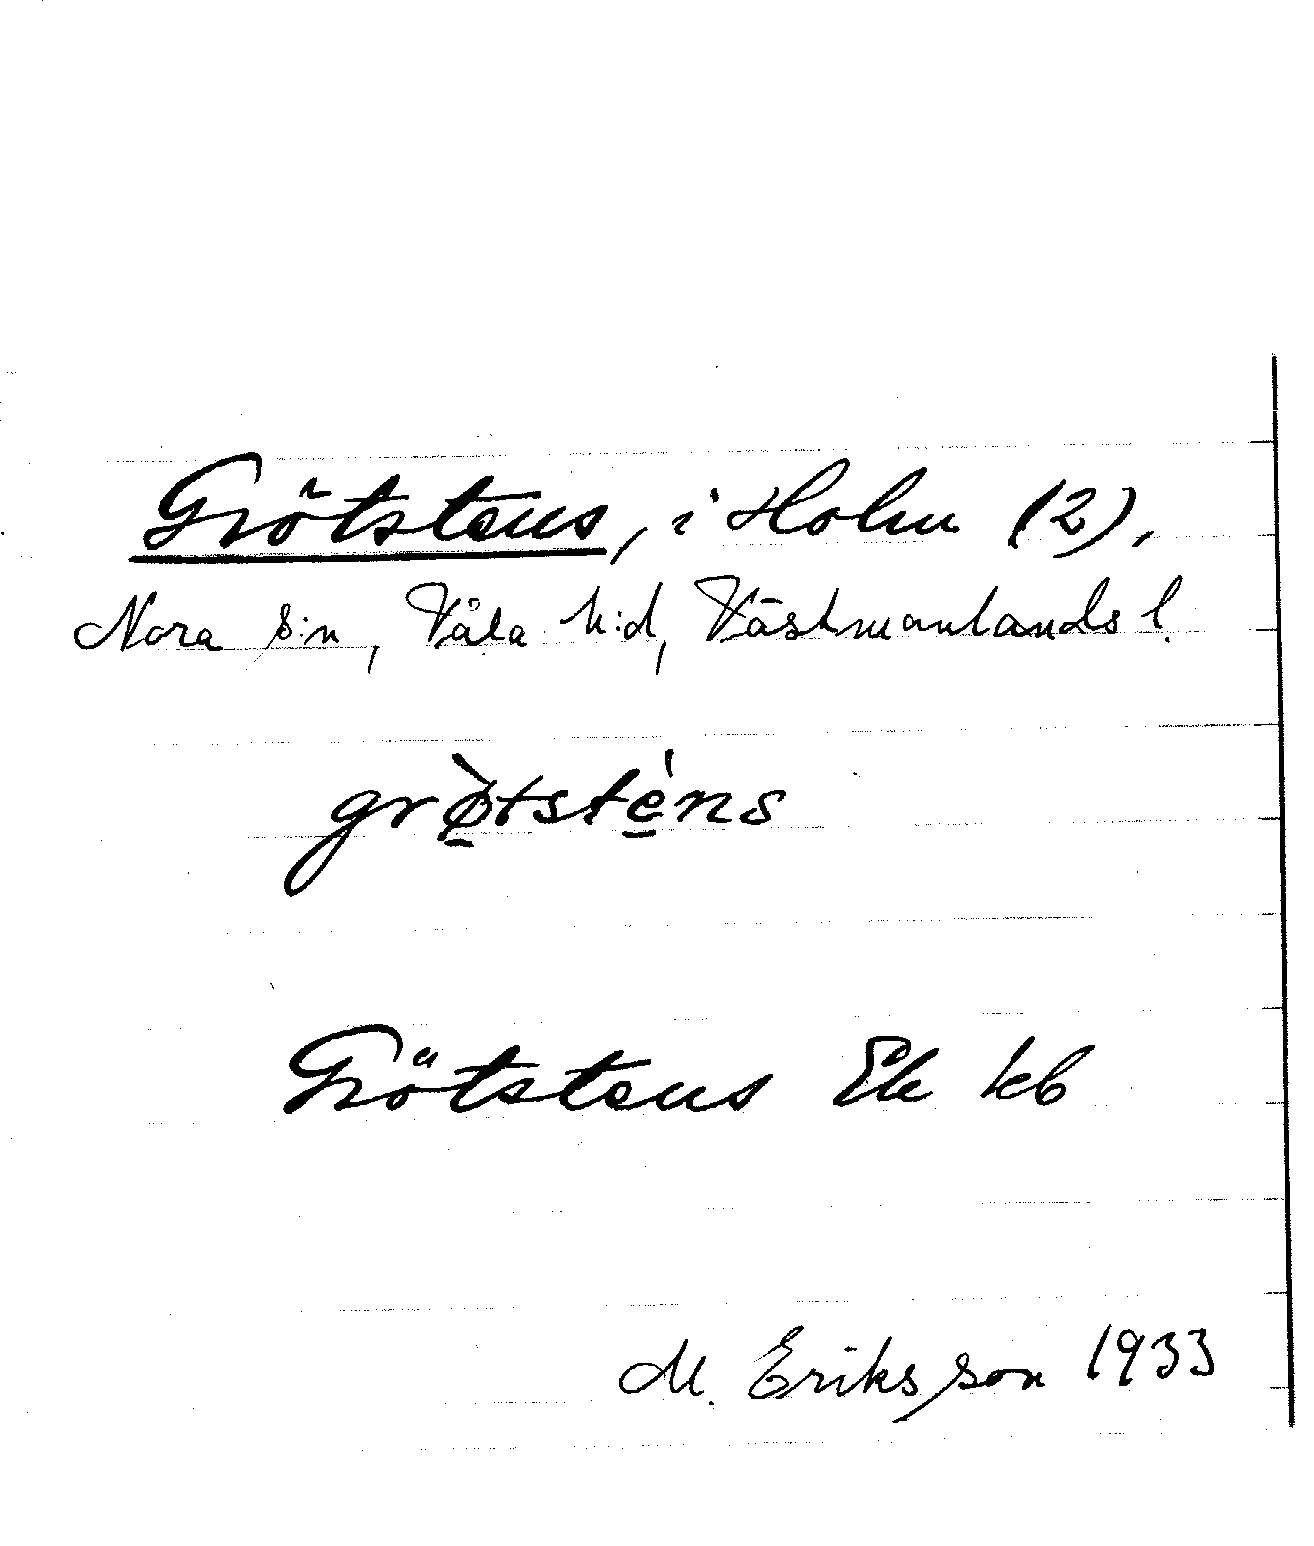 Grötstens, i Holm (2),
Nora s:n, Våla h:d, Västmanlands l.
grø̀tsténs
Grötstens Ek kb
M. Eriksson 1933